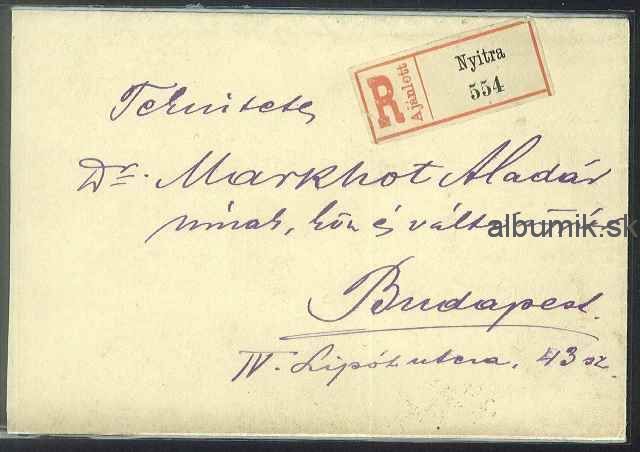 R
Ajánlott
Nyitra
554
Tekintetes
Dr. Markhot Aladár
úrnak, köz és váltó
albumik.sk
Budapest.
IV. Lipót utcza, 43 sz.